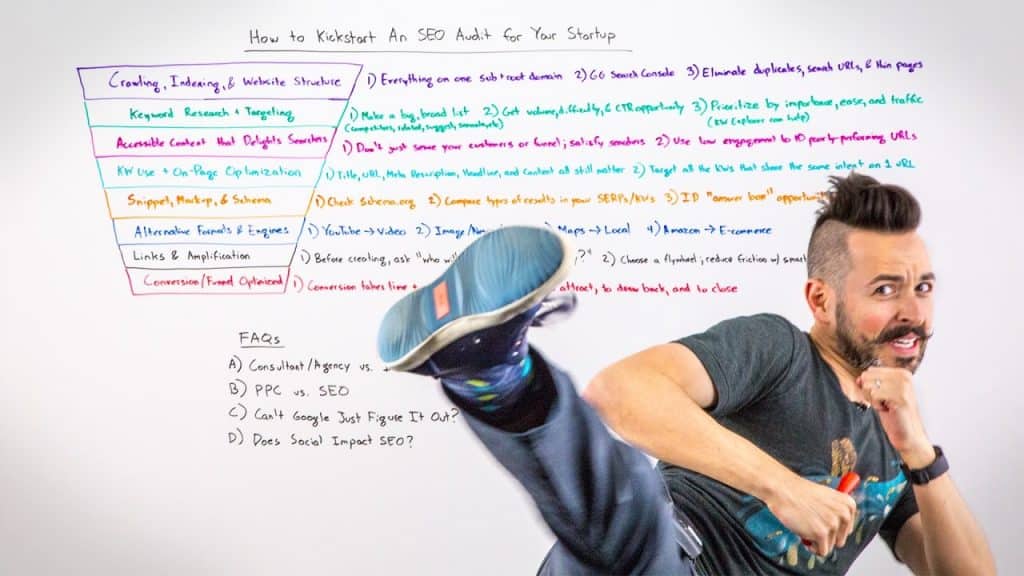 How to Kickstart An SEO Audit for Your Startup
Crawling, Indexing, & Website Structure 1) Everything on one sub + root domain 2) GG Search Console 3) Eliminate duplicates, search URLs, & thin pages
Keyword Research + Targeting 1) Make a big, broad list 2) Get volume, difficulty, & CTR opportunity 3) Prioritize by importance, ease, and traffic
(competitors, related, suggest, semantic, etc) (KW Explorer can help)
Accessible Content that Delights Searchers 1) Don't just serve your customers or funnel; satisfy searchers 2) Use low engagement to ID poorly-performing URLs
KW Use + On-Page Optimization 1) Title, URL, Meta Description, Headline, and Content all still matter 2) Target all the KWs that share the same intent on 1 URL
Snippet, Mark-up, & Schema 1) Check Schema.org 2) Compare types of results in your SERPs/KWs 3) ID "answer box"
Alternative Formats & Engines 1) YouTube → Video 2) Maps → Local 4) Amazon → E-commerce
Links & Amplification 1) Before creating, ask "who ?" 2) Choose a flywheel; reduce friction w/
Conversion/Funnel Optimized 1) Conversion takes time + attract, to draw back, and to close
FAQs
A) Consultant/Agency vs.
B) PPC vs. SEO
C) Can't Google Just Figure It Out?
D) Does Social Impact SEO?